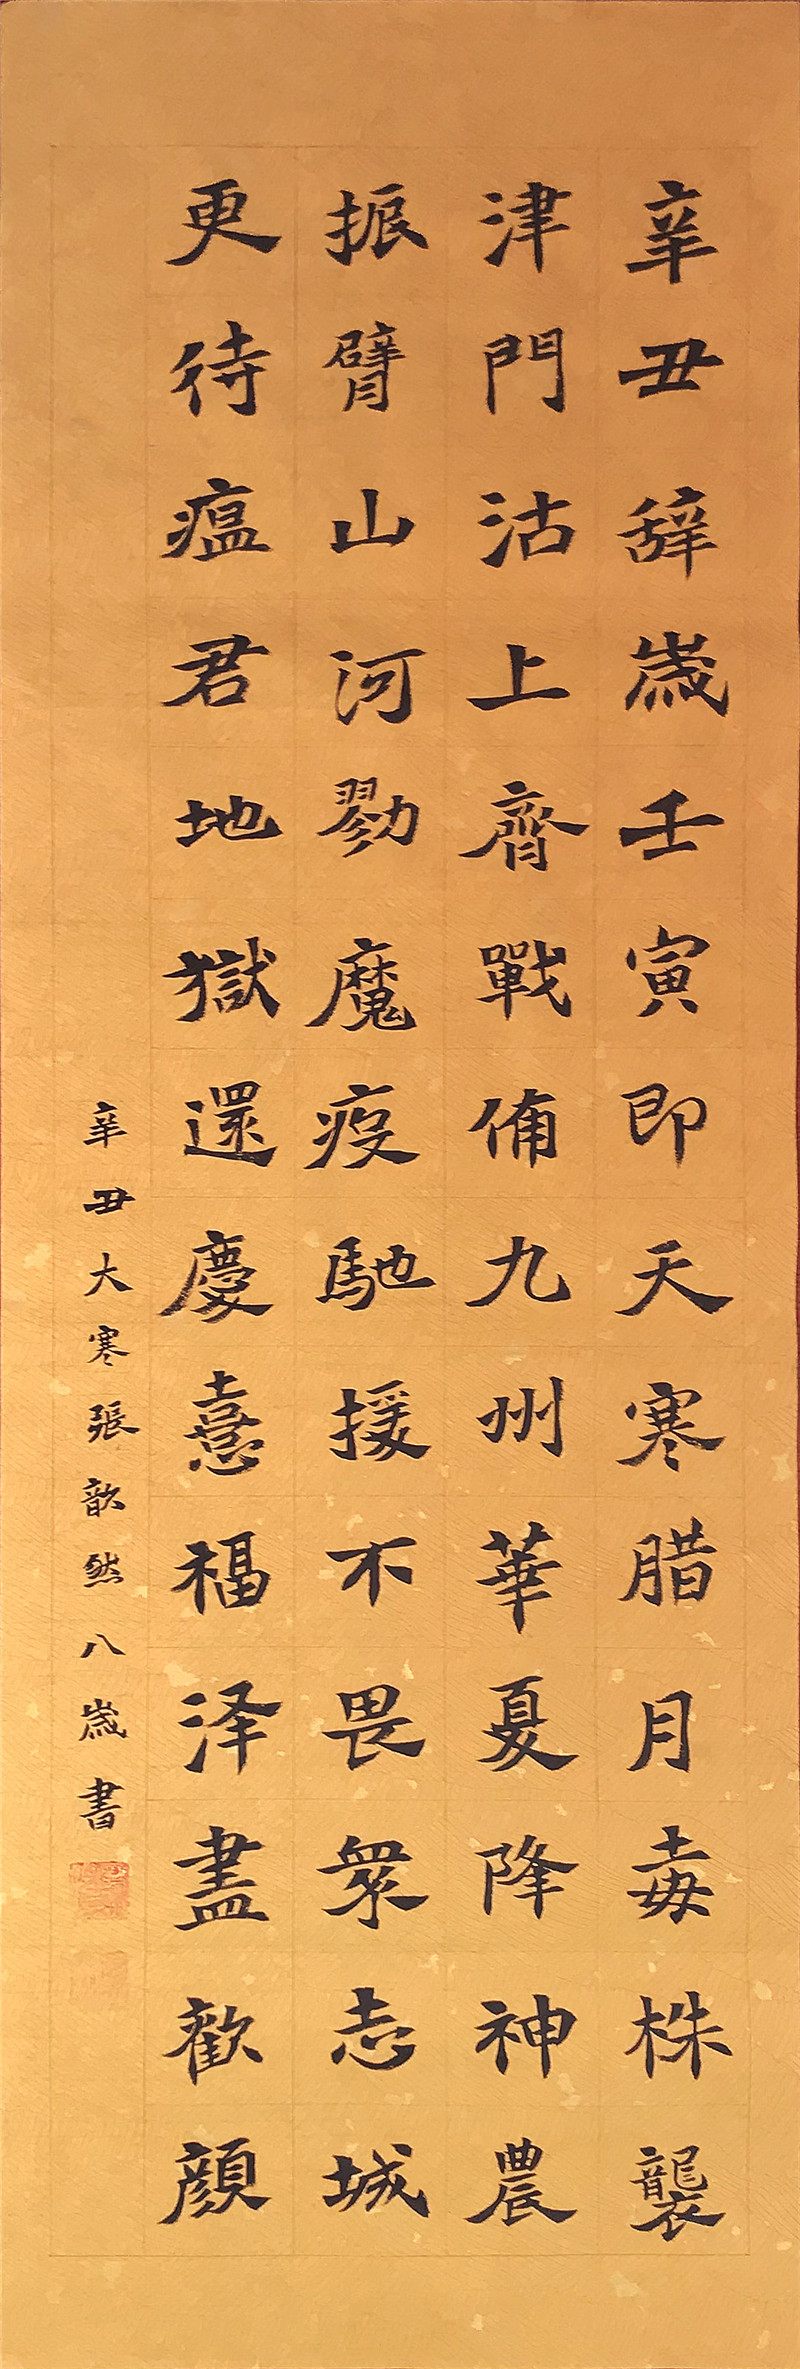 辛丑辞歲壬寅即天寒腊月毒株襲
津門沽上齊戰備九州華夏降神農
振臂山河勠魔疫馳援不畏衆志城
更待瘟君地獄還慶憙福泽盡歡顔
辛丑大寒張歆然八歲書